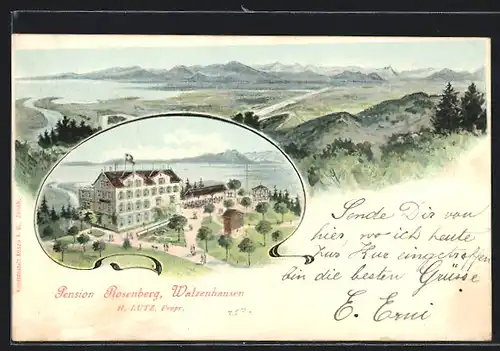 Pension Rosenberg, Walzenhausen
H. LUTZ, Propr.
Sende Dir von
hier, wo ich heute
zur Kur eingetroffen
bin die besten Grüsse
E. Erni